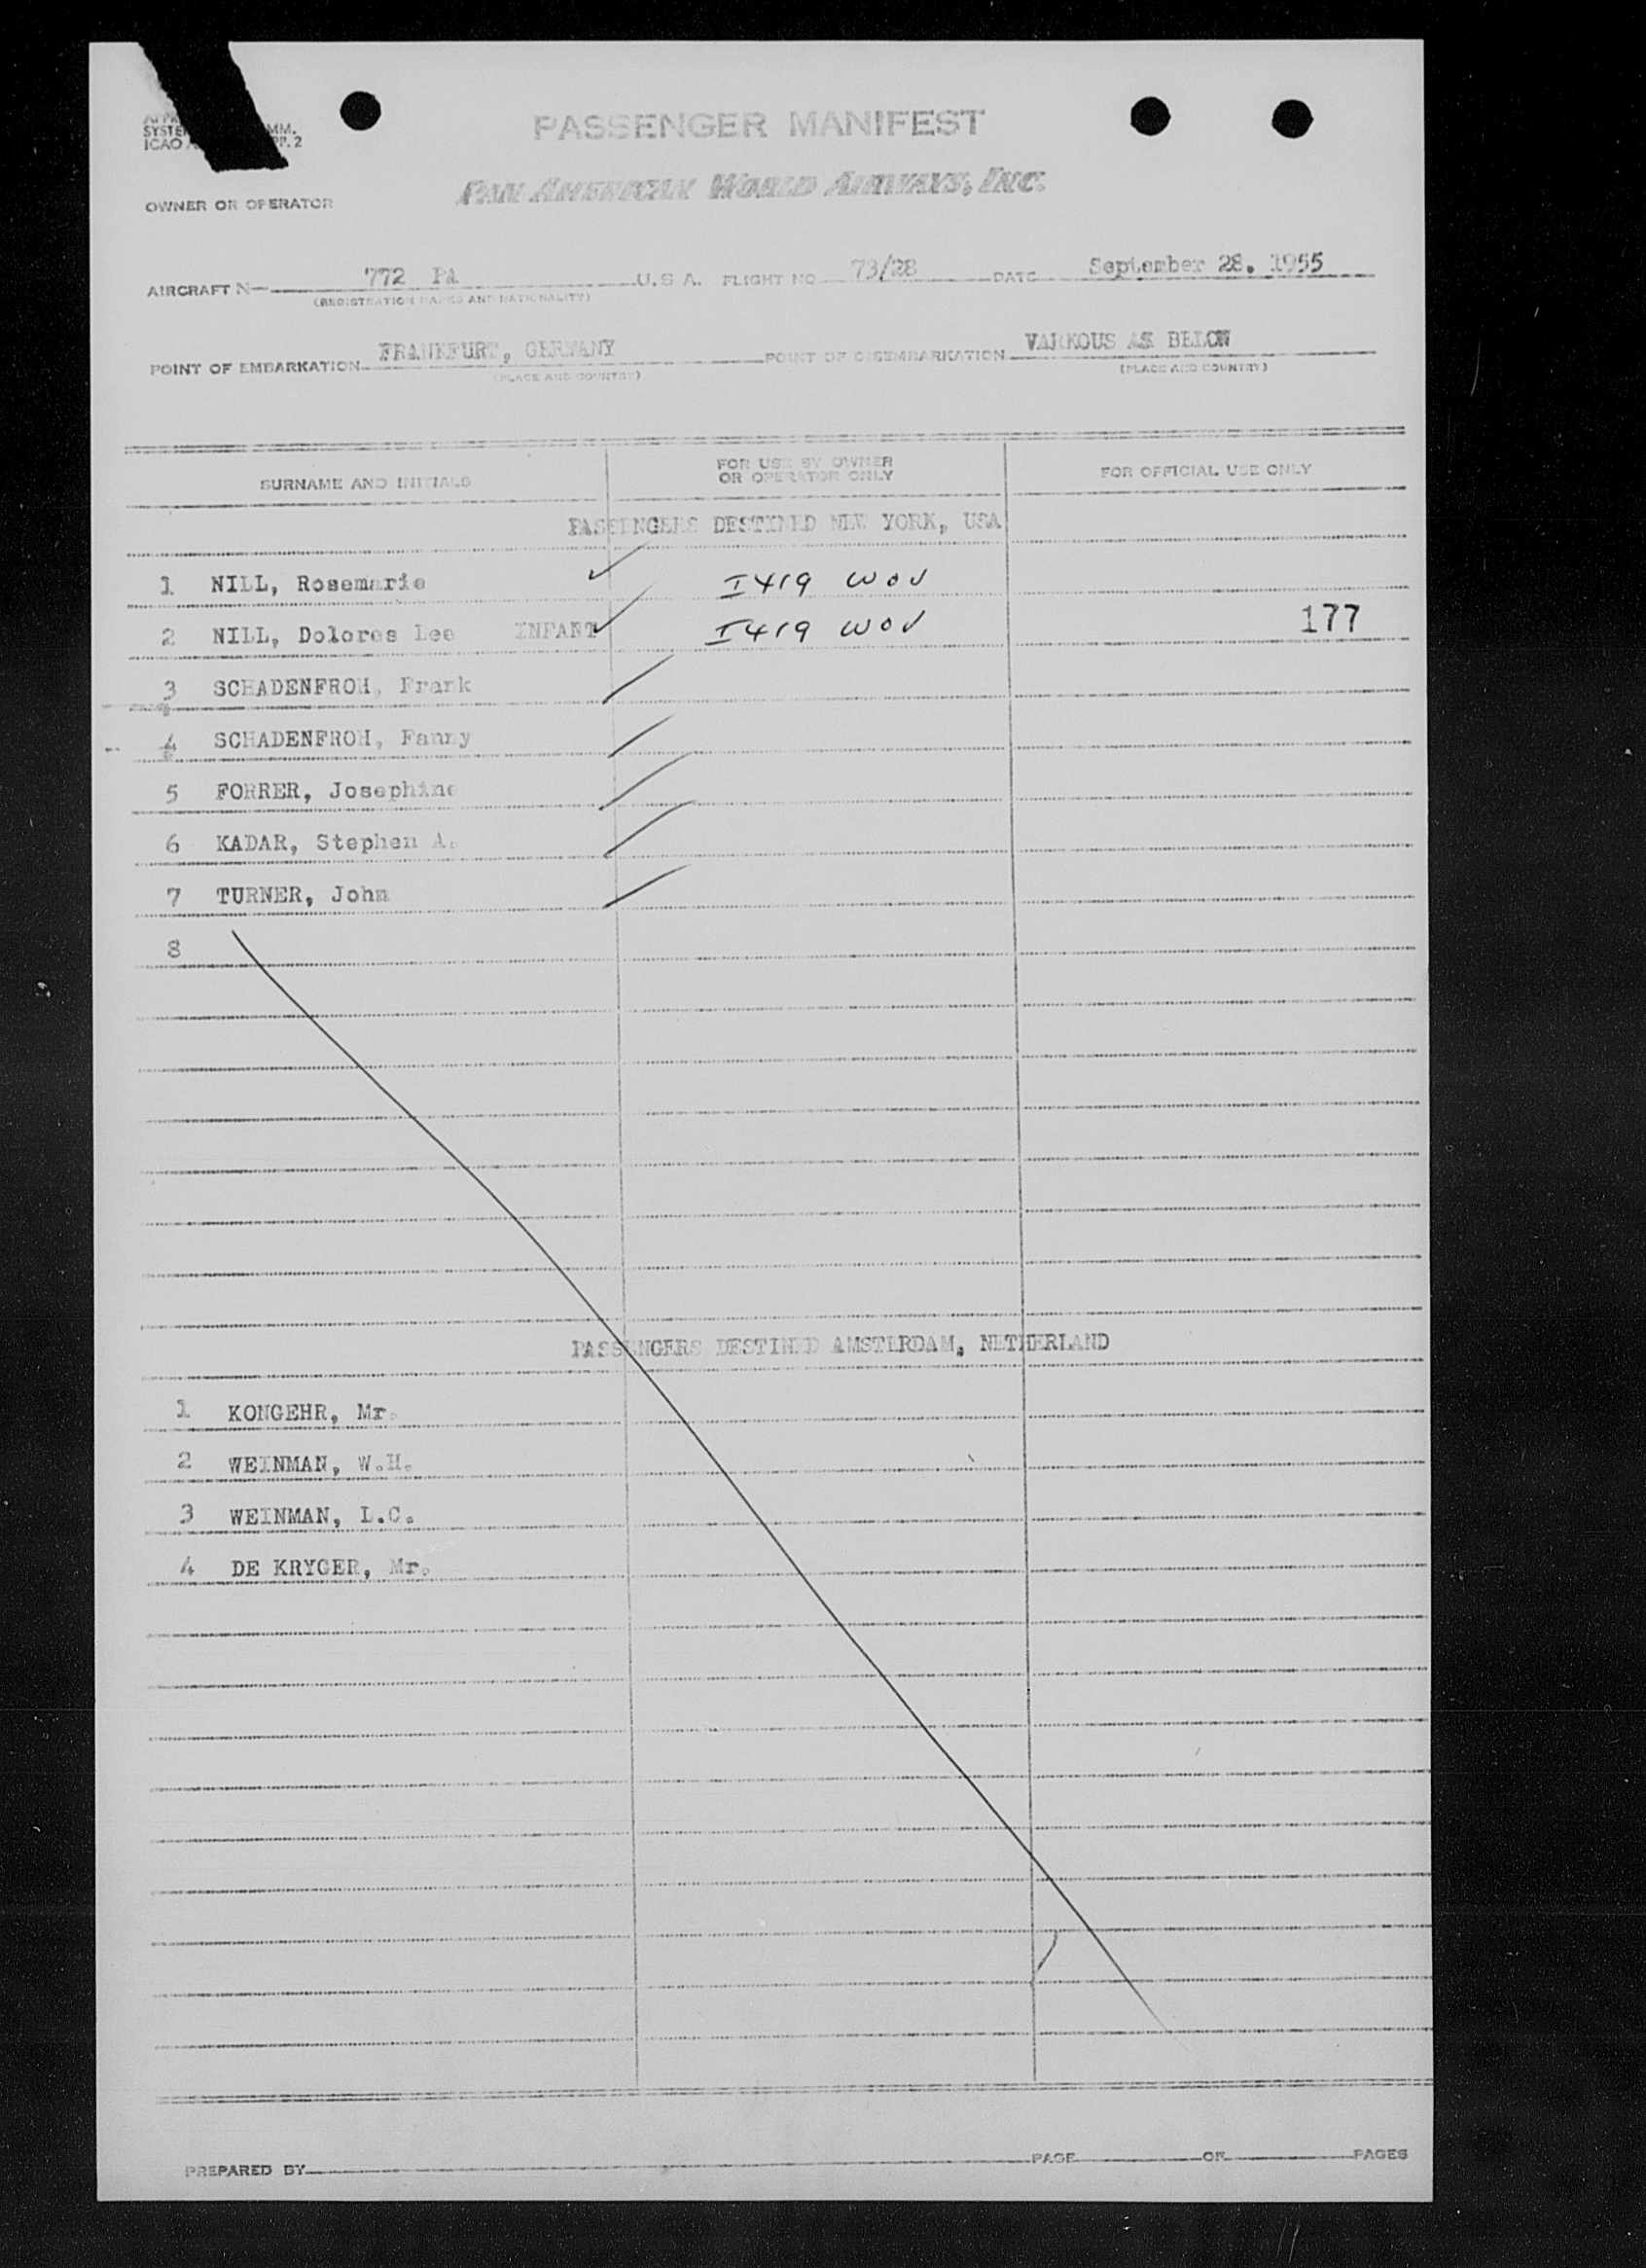 PASSENGER MANIFEST
SYSTE MM.
ICAO P. 2
PAN AMERICAN WORLD AIRWAYS, INC.
OWNER OR OPERATOR
AIRCRAFT N— 772 PA U.S.A. FLIGHT NO 73/28 DATE September 28. 1955
(REGISTRATION MARKS AND NATIONALITY)
POINT OF EMBARKATION FRANKFURT, GERMANY POINT OF DISEMBARKATION VARKOUS AS BELOW
(PLACE AND COUNTRY) (PLACE AND COUNTRY)
SURNAME AND INITIALS FOR USE BY OWNER OR OPERATOR ONLY FOR OFFICIAL USE ONLY
PASSENGERS DESTINED NEW YORK, USA
1 NILL, Rosemarie I419 WOV
2 NILL, Dolores Lee INFANT I419 WOV 177
3 SCHADENFROH, Frank
4 SCHADENFROH, Fanny
5 FORRER, Josephine
6 KADAR, Stephen A.
7 TURNER, John
8
PASSENGERS DESTINED AMSTERDAM, NETHERLAND
1 KONGEHR, Mr.
2 WEINMAN, W.H.
3 WEINMAN, L.C.
4 DE KRYGER, Mr.
PREPARED BY PAGE OF PAGES